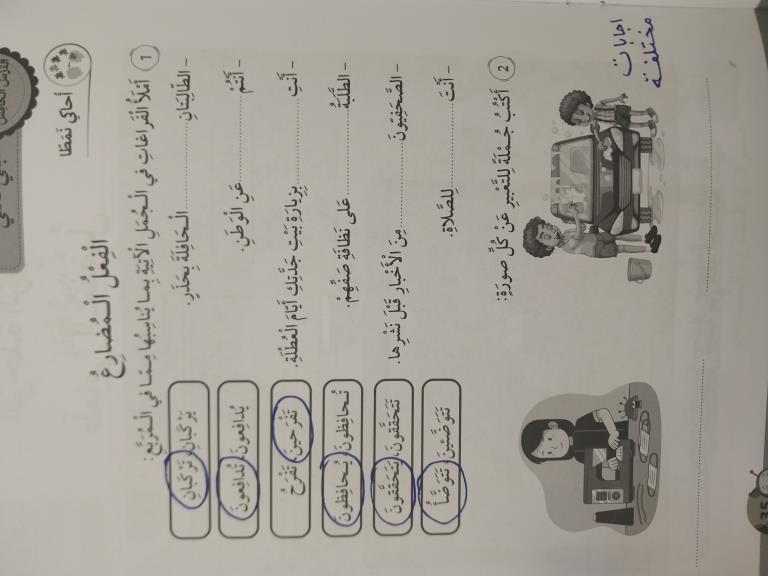 أحاكي نَمَطًا
الْفِعْلُ الْمُضارِعُ
1 أَمْلَأُ الْفَراغاتِ في الْجُمَلِ الْآتِيَةِ بِما يُناسِبُها مِمّا في الْمُرَبَّعِ:
- الطّالِبَتانِ ............ الْحافِلَةَ بِحَذَرٍ. يَرْكَبانِ، تَرْكَبانِ
- أَنْتُمْ ............ عَنِ الْوَطَنِ. يُدافِعونَ، تُدافِعونَ
- أَنْتِ ............ بِزِيارَةِ بَيْتِ جَدَّتِكِ أَيّامَ الْعُطْلَةِ. تَفْرَحينَ، تَفْرَحُ
- الطَّلَبَةُ ............ عَلى نَظافَةِ صَفِّهِمْ. تُحافِظونَ، يُحافِظونَ
- الصَّحَفِيّونَ ............ مِنَ الْأَخْبارِ قَبْلَ نَشْرِها. تَتَحَقَّقونَ، يَتَحَقَّقونَ
- أَنْتَ ............ لِلصَّلاةِ. تَتَوَضَّئينَ، تَتَوَضَّأُ
2 أَكْتُبُ جُمْلَةً لِلتَّعْبيرِ عَنْ كُلِّ صورَةٍ:
اجابات
مختلفة
35